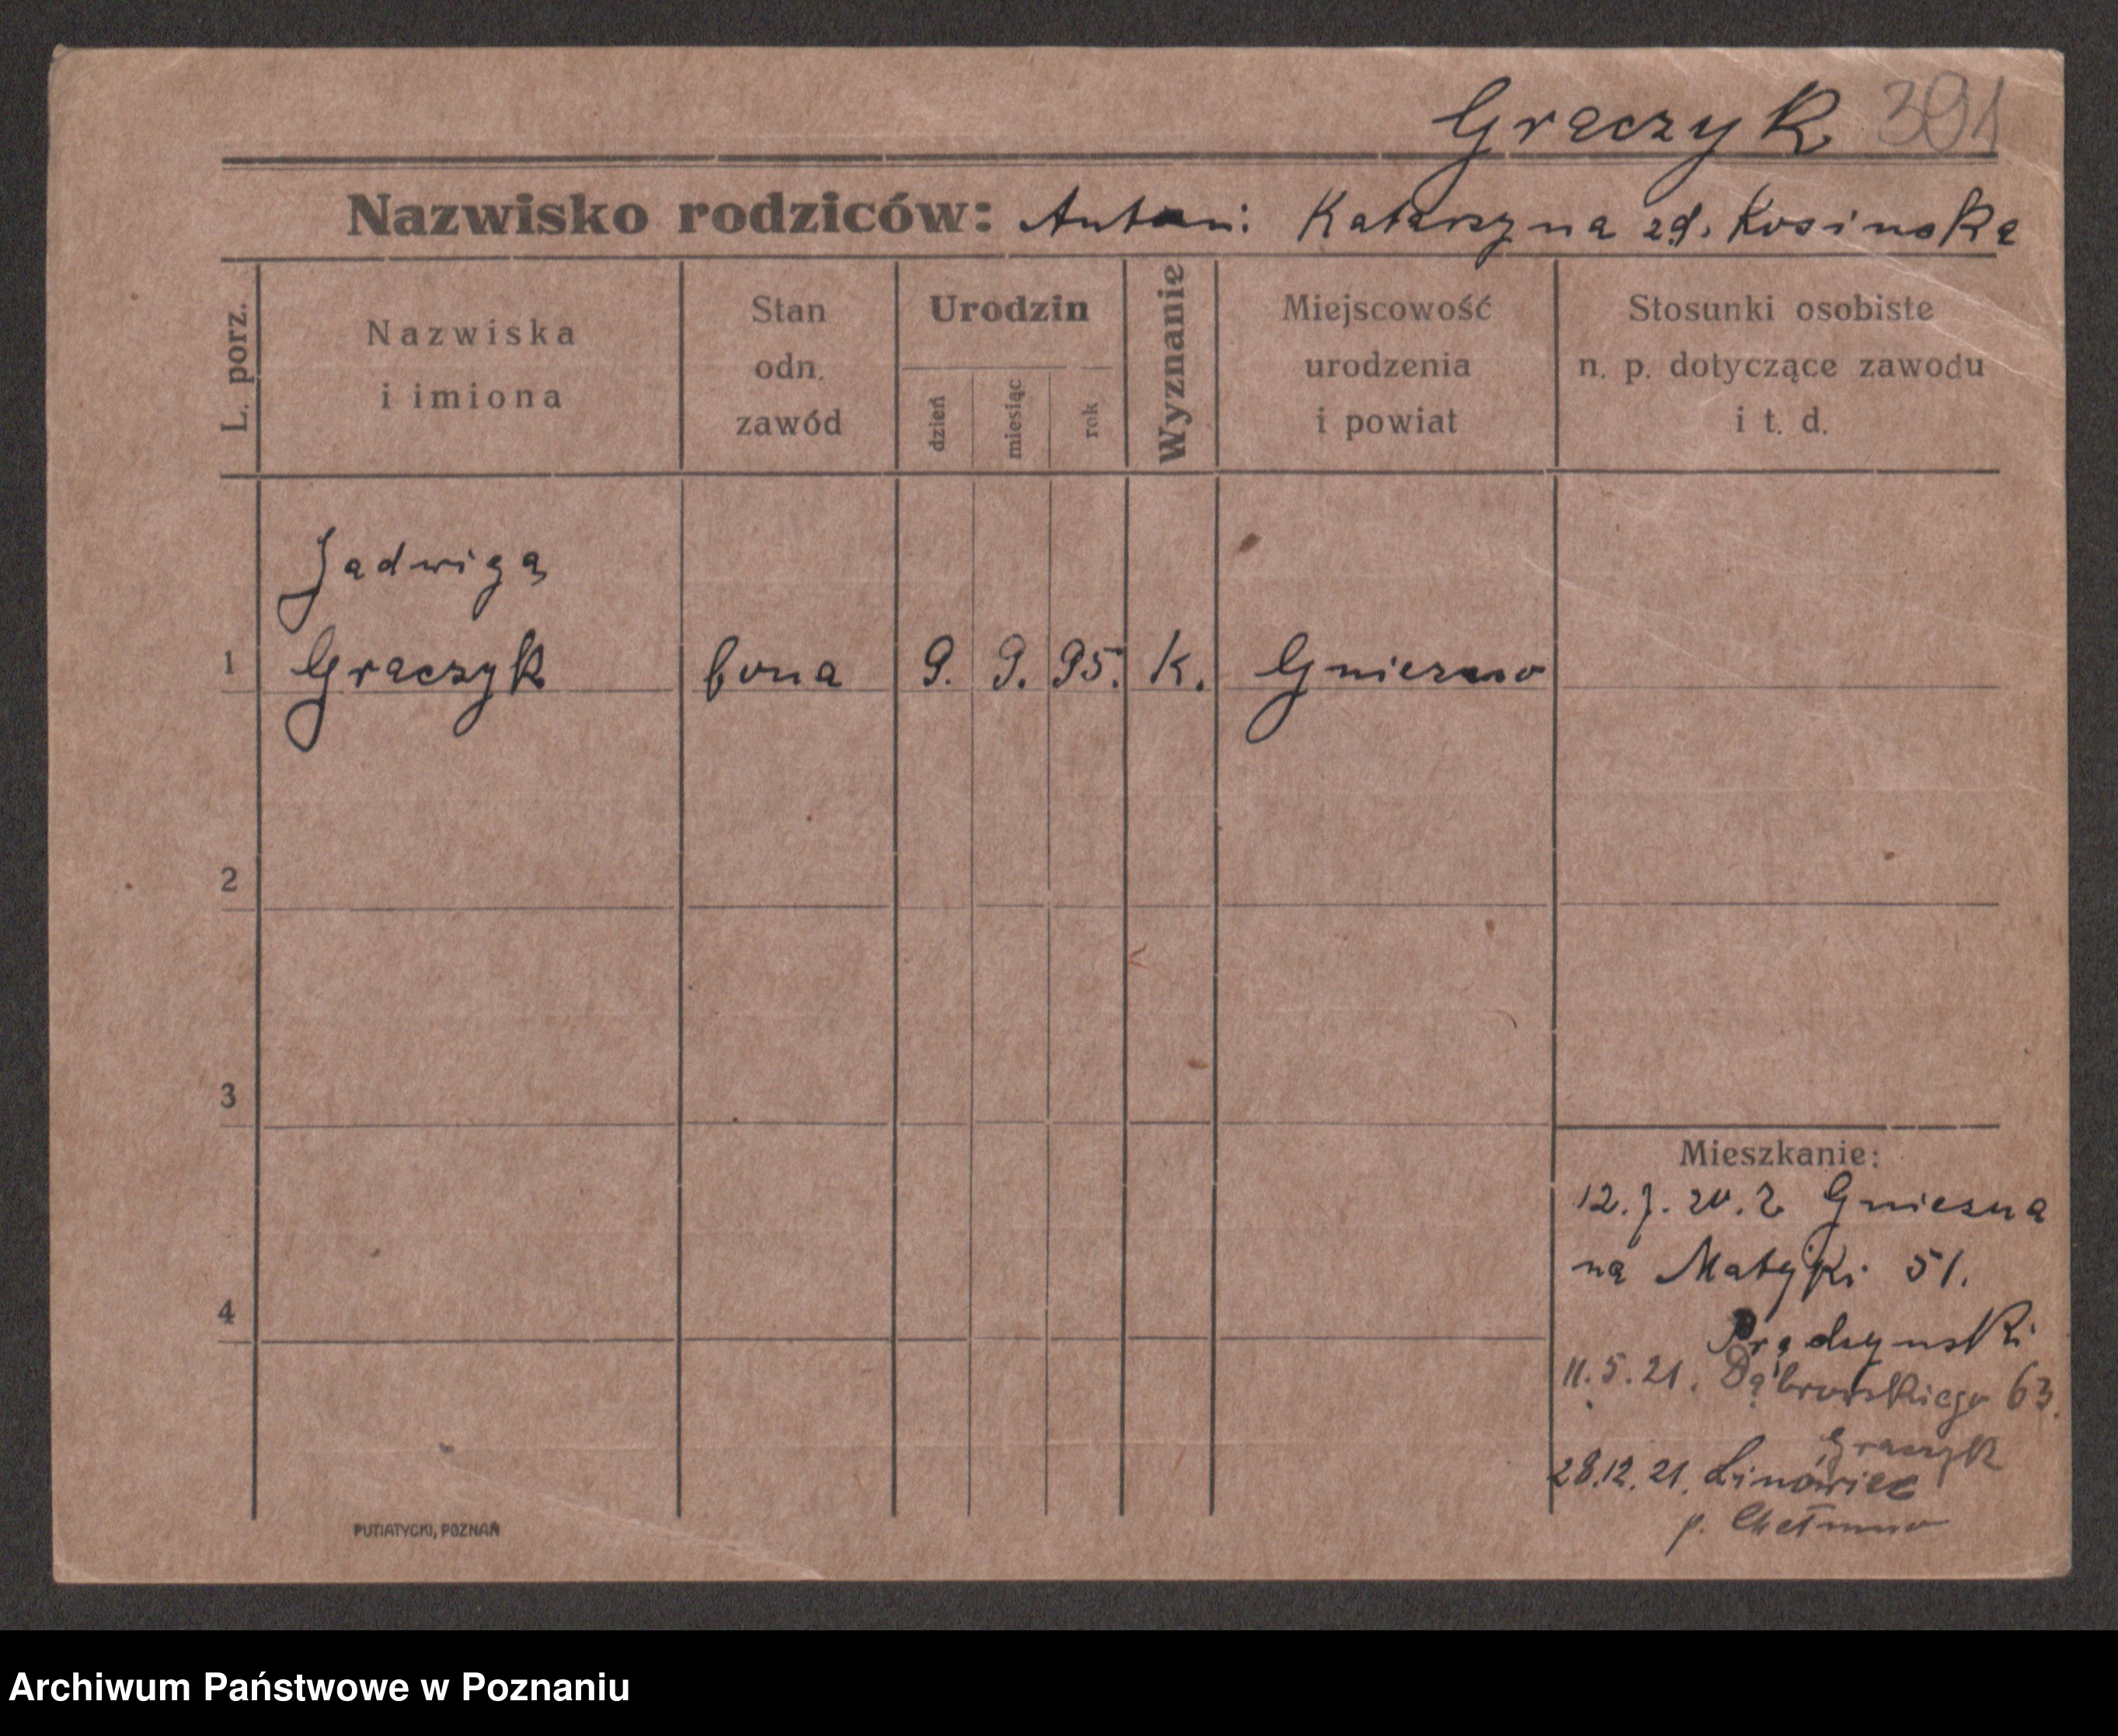 Graczyk 391
Nazwisko rodziców: Antoni Katarzyna zd. Kosinska
L. porz.
Nazwiska
i imiona
Stan
odn.
zawód
Urodzin
dzień
miesiąc
rok
Wyznanie
Miejscowość
urodzenia
i powiat
Stosunki osobiste
n. p. dotyczące zawodu
i t. d.
Jadwiga
1 Graczyk bona 9. 9. 95. K. Gniezno
2
3
4
Mieszkanie:
12.7.20. z Gniezna
na Matejki 51.
Prądzynski
11.5.21. Dąbrowskiego 63.
Graczyk
28.12.21. Linowiec
p. Chełmno
PUTIATYCKI, POZNAŃ
Archiwum Państwowe w Poznaniu